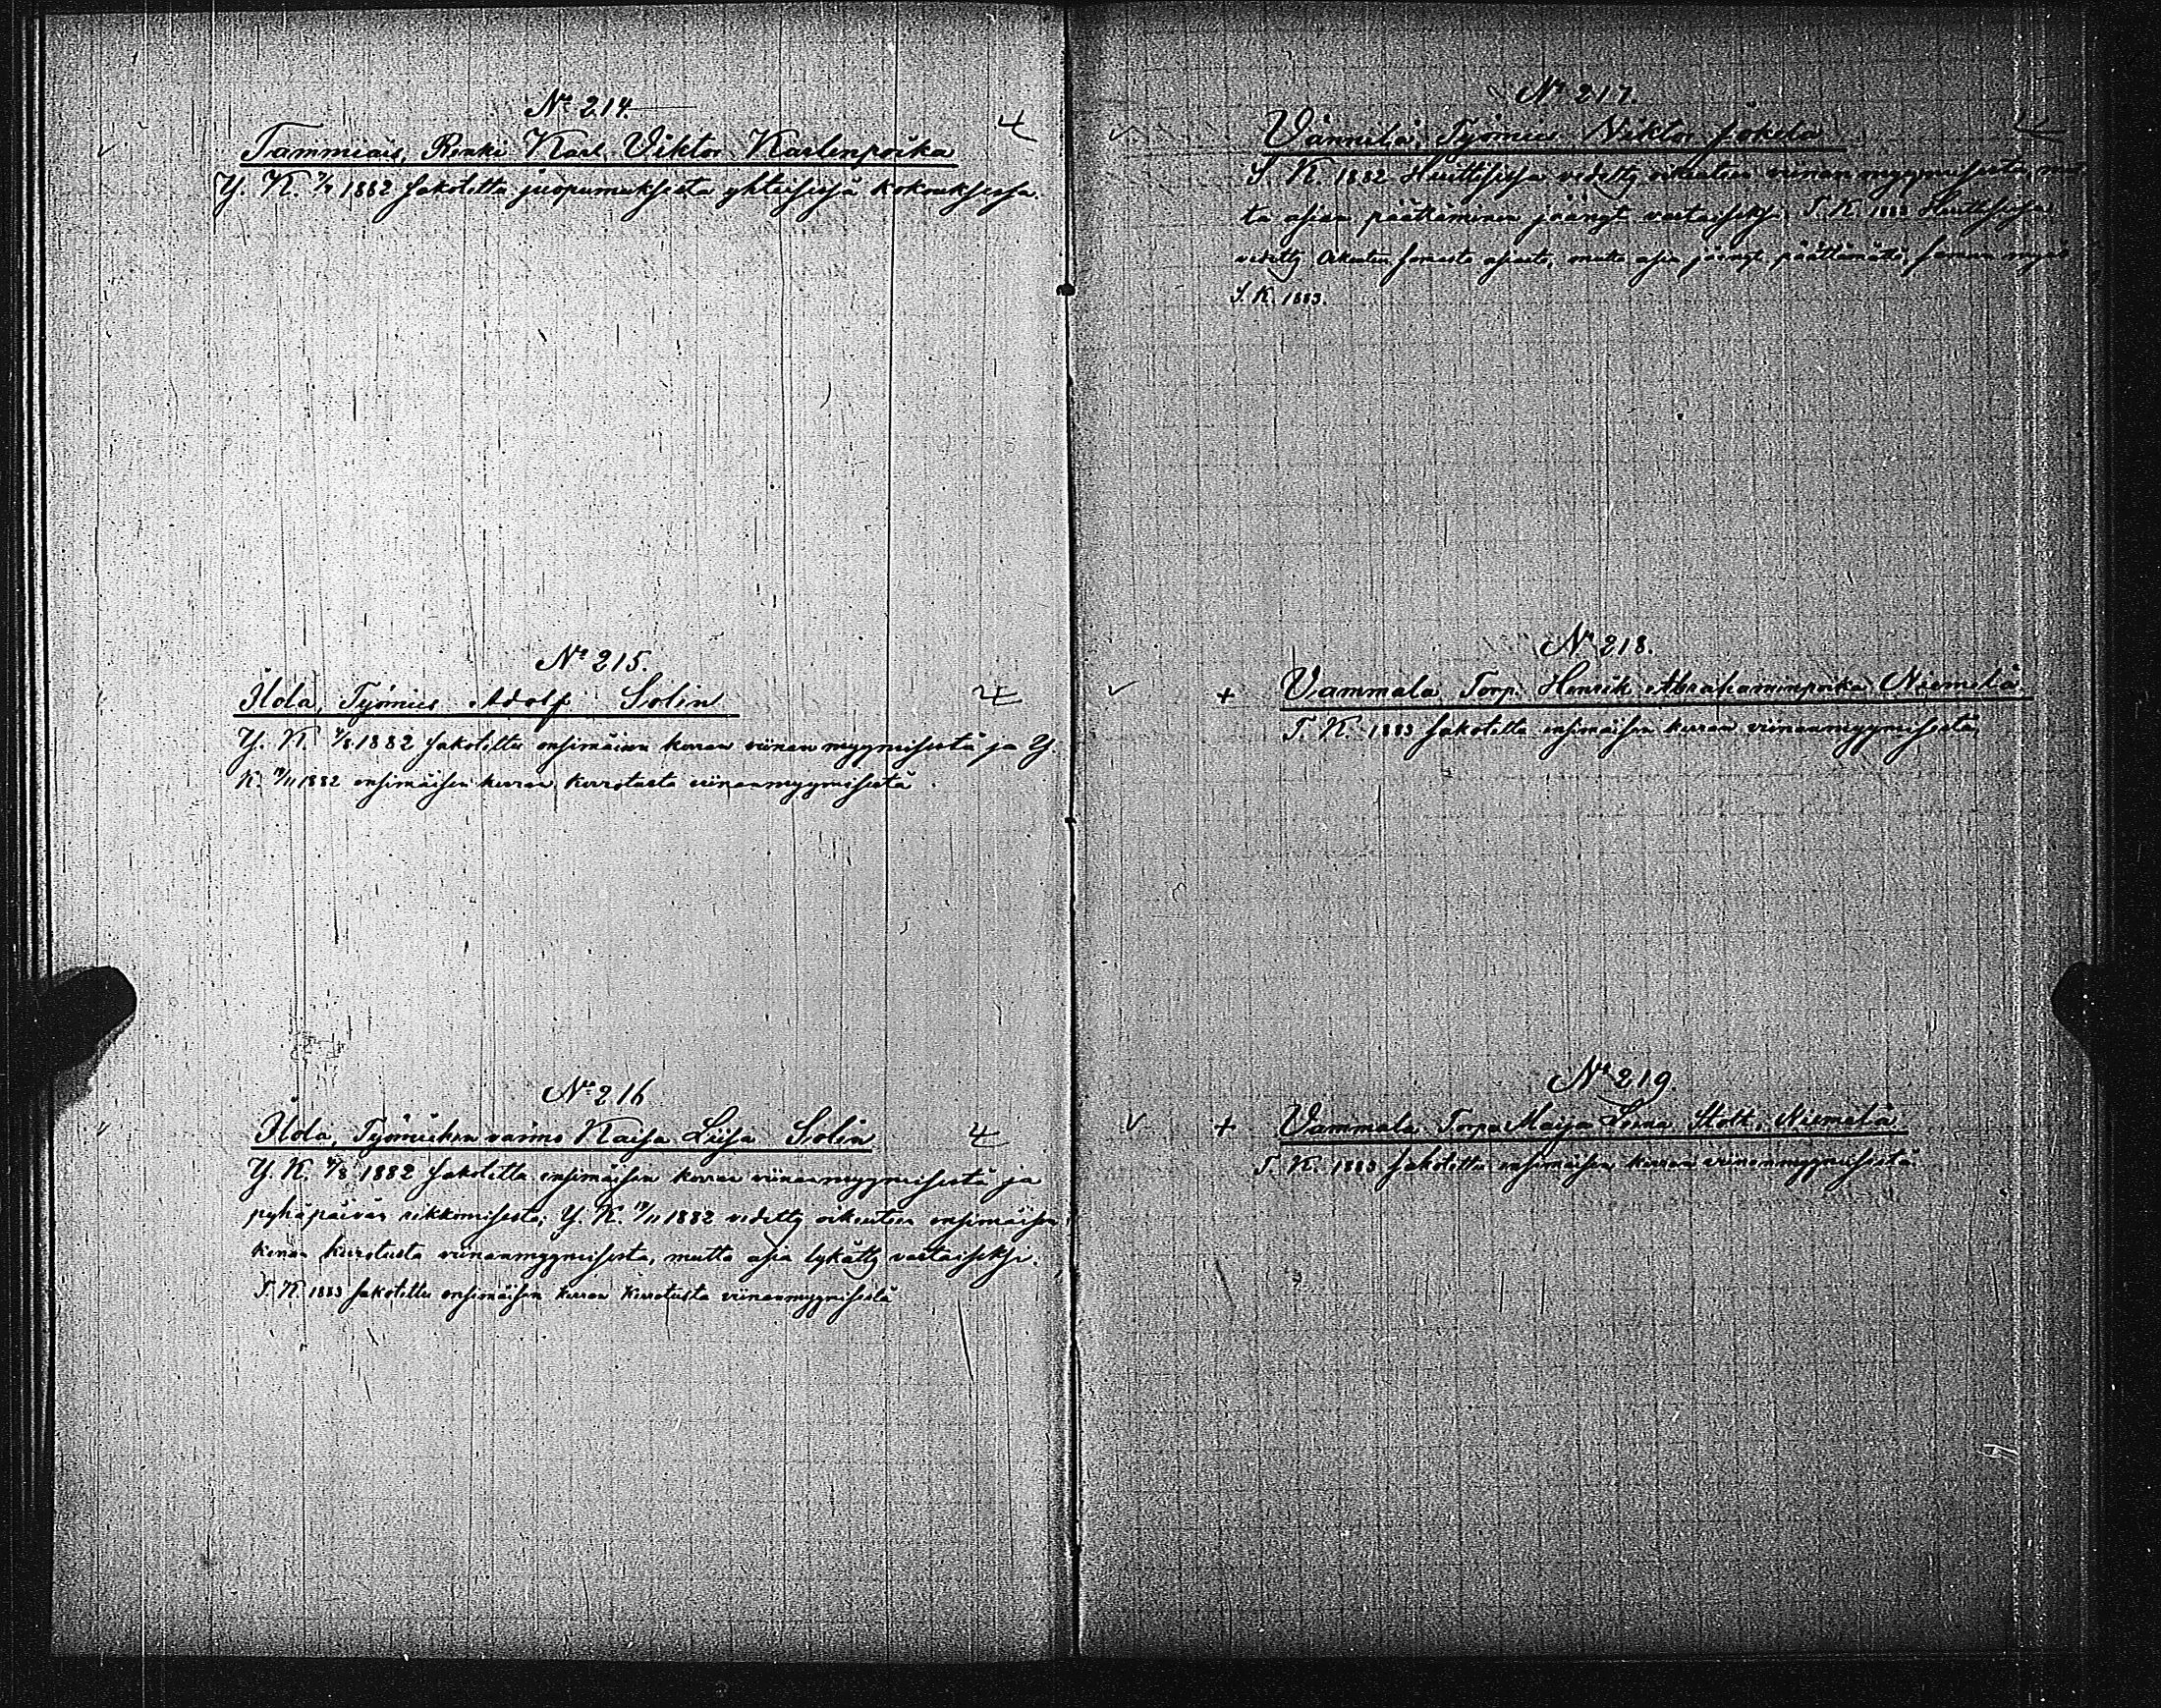 No 214.
Tammiais, Renki Karl Viktor Karlenpoika
Y. K. 7/7 1882 sakotettu juopumuksesta yhteisessä kokouksessa.
No 215.
Ilola, Työmies Adolf Solin
Y. K. 7/8 1882 sakotettu ensimäisen kerran viinan myymisestä ja Y.
K. 14/11 1882 ensimäisen kerran kerrotusta viinanmyymisestä
No 216
Ilola, Työmiehen vaimo Kaisa Liisa Solin
Y. K. 7/8 1882 sakotettu ensimäisen kerran viinanmyymisestä ja
pyhäpäivän rikkomisesta; Y. K. 14/11 1882 vedetty oikeuteen ensimäisen
kerran kerrotusta viinanmyymisestä, mutta asia lykätty vastaiseksi.
T. K. 1883 sakotettu ensimäisen kerran kerrotusta viinanmyymisestä
No 217.
Vännilä, Työmies Viktor Jokela
S. K. 1882 Huittisissa vedetty oikeuteen viinan myymisestä, mut
ta asian päättäminen jäänyt vastaiseksi. T. K. 1883 Huittisissa
vedetty oikeuteen samasta asiasta, mutta asia jäänyt päättämättä, samoin myös
S. K. 1883.
No 218.
+ Vammala Torp. Henrik Abrahaminpoika Niemelä
T. K. 1883 sakotettu ensimäisen kerran viinanmyymisestä,
No 219
+ Vammala Torp. Maija Leena Niemelä
T. K. 1883 sakotettu ensimäisen kerran viinanmyymisestä.